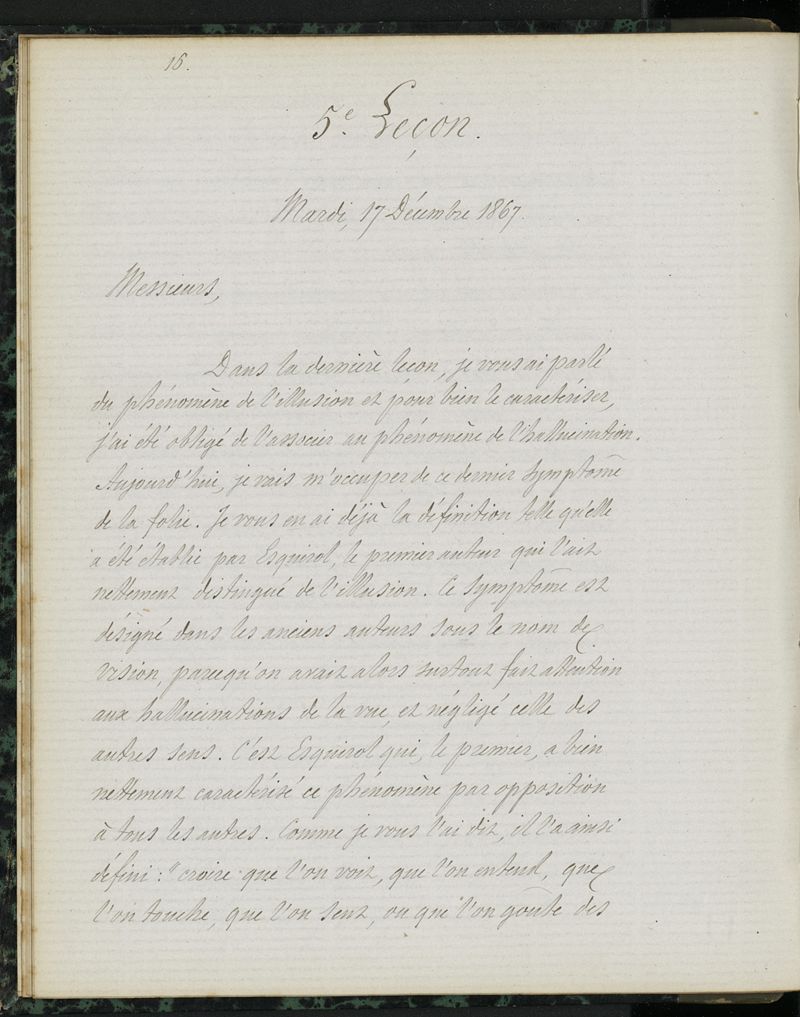 16.
5e. Leçon.
Mardi, 17 Décembre 1867.
Messieurs,
Dans la dernière leçon, je vous ai parlé
du phénomène de l'illusion et pour bien le caractériser,
j'ai été obligé de l'associer au phénomène de l'hallucination.
Aujourd'hui, je vais m'occuper de ce dernier symptôme
de la folie. Je vous en ai déjà la définition telle qu'elle
a été établie par Esquirol, le premier auteur qui l'ait
nettement distingué de l'illusion. Ce symptôme est
désigné dans les anciens auteurs sous le nom de
vision, parcequ'on avait alors surtout fait attention
aux hallucinations de la vue, et négligé celle des
autres sens. C'est Esquirol qui, le premier, a bien
nettement caractérisé ce phénomène par opposition
à tous les autres. Comme je vous l'ai dit, il l'a ainsi
défini : "croire que l'on voit, que l'on entend, que
l'on touche, que l'on sent, ou que l'on goûte des